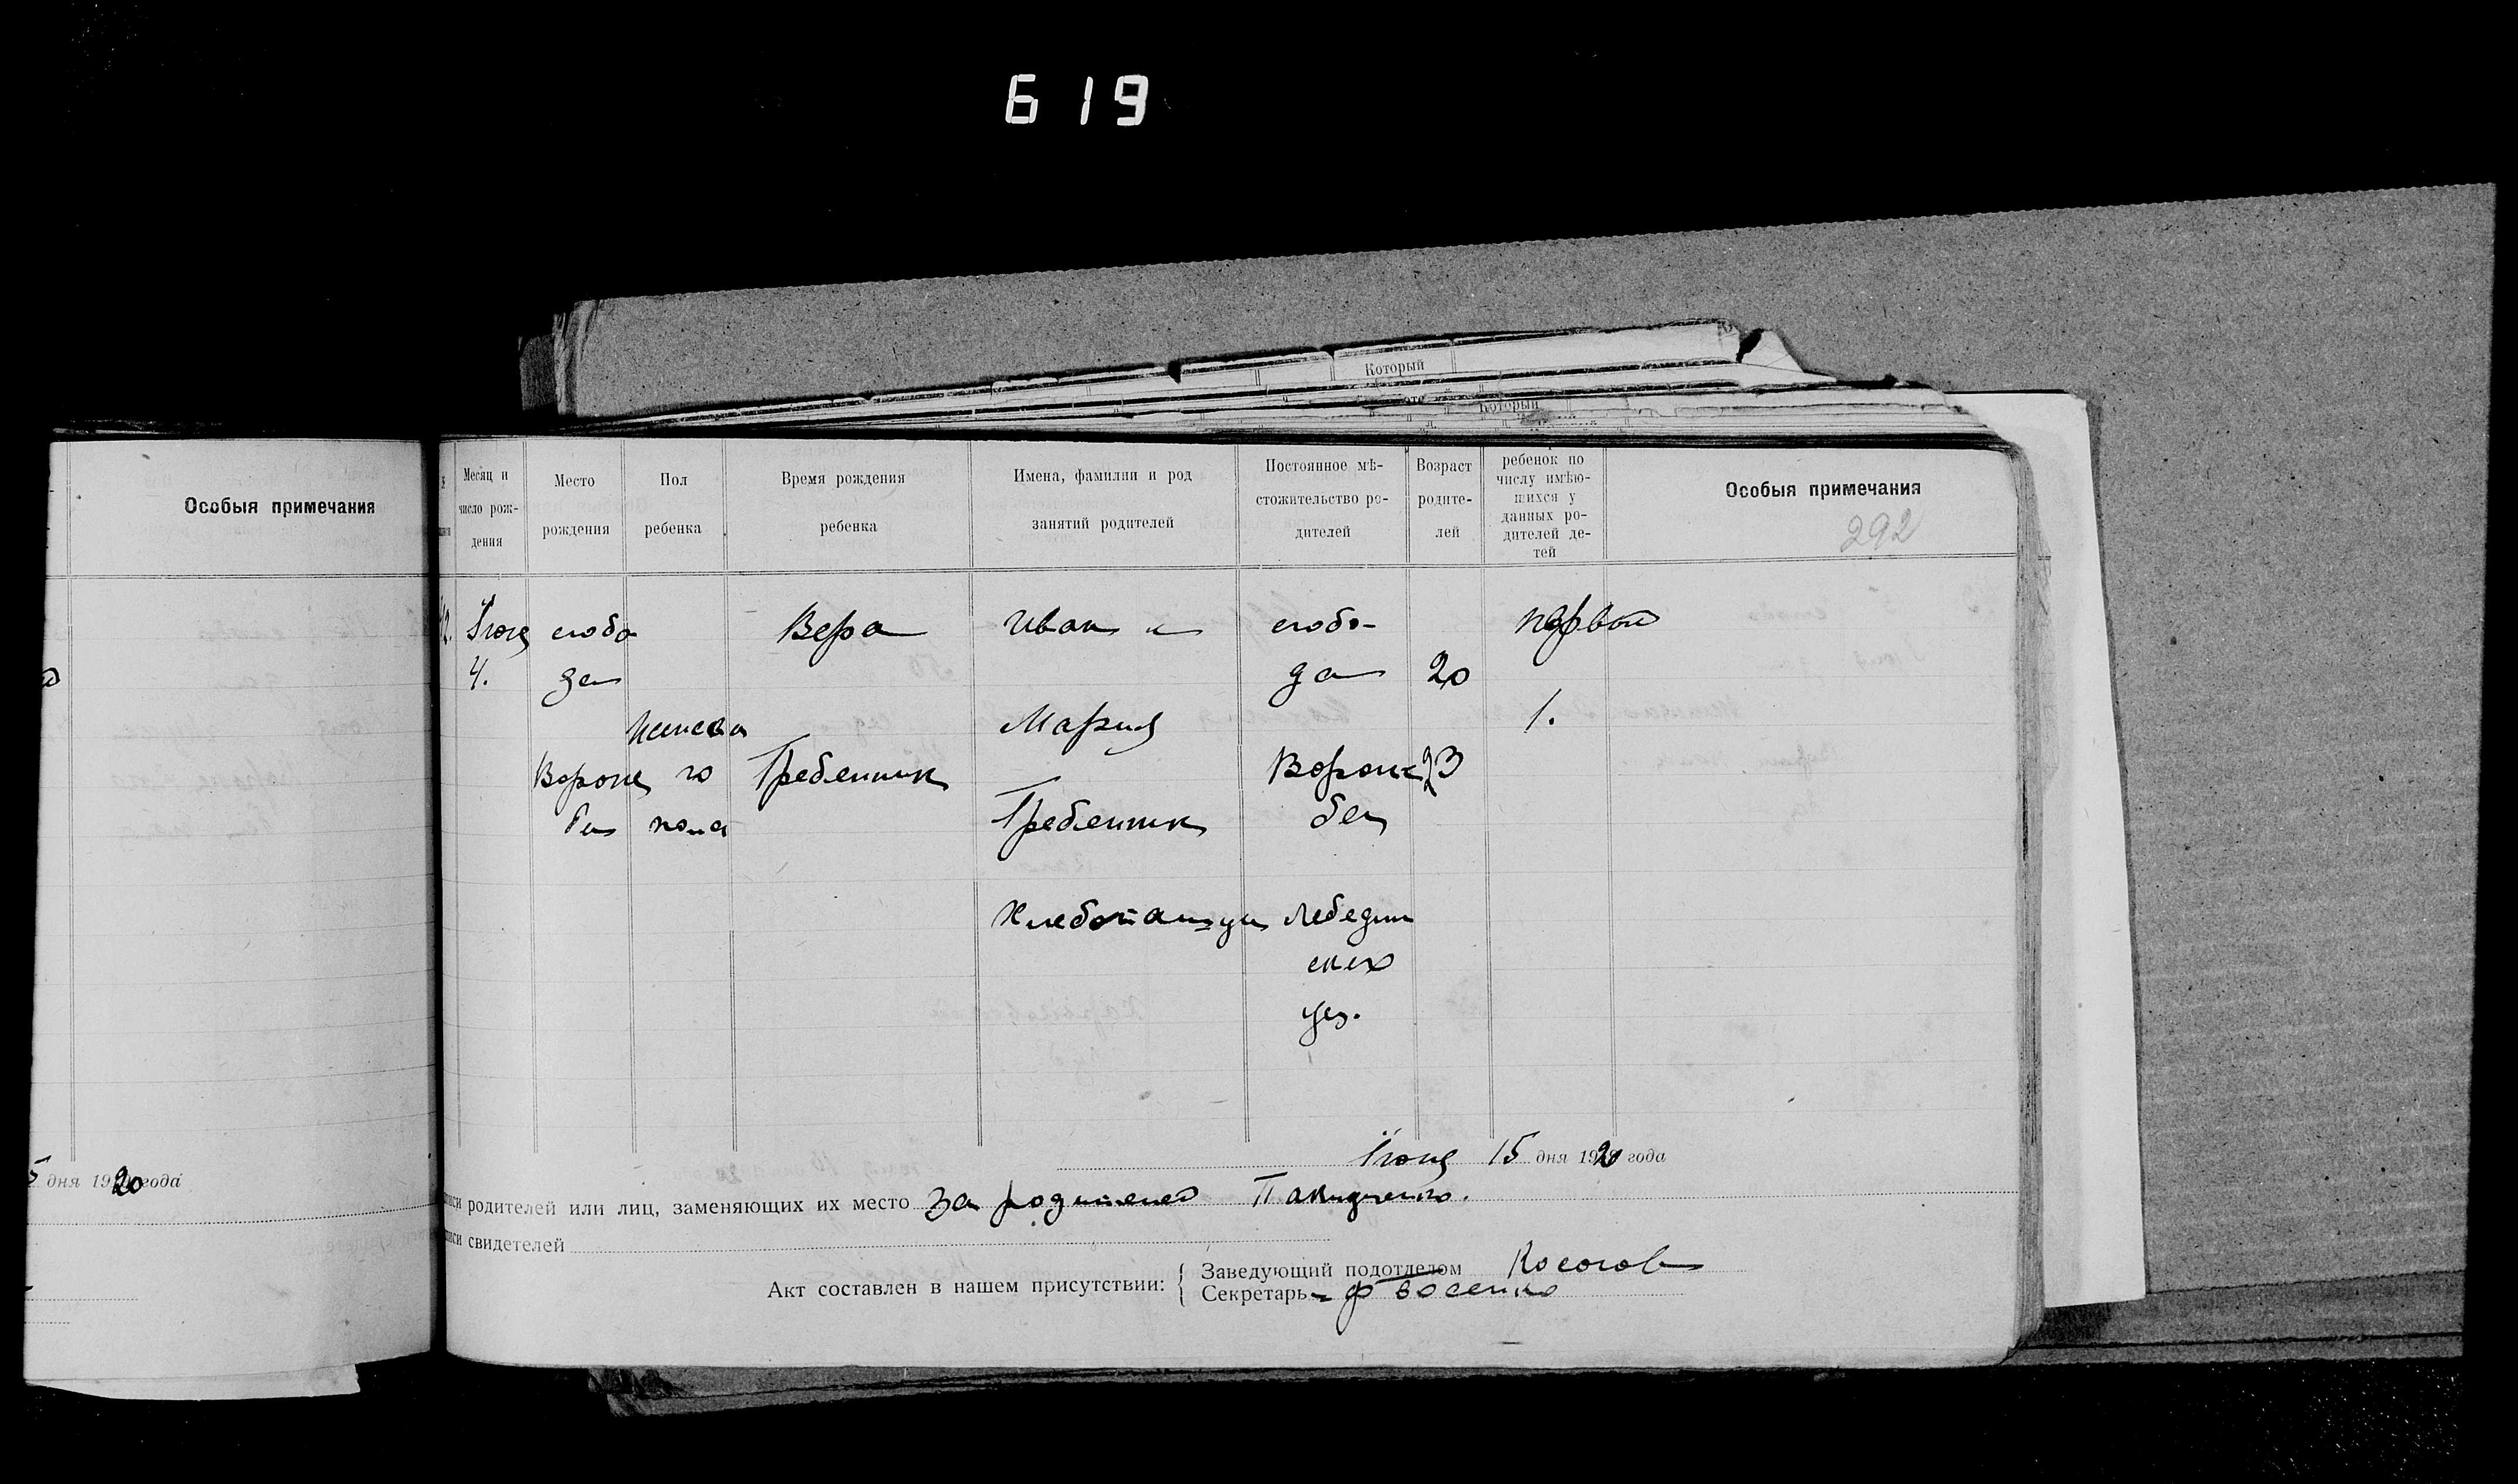 619
Который
Который
Особыя примечания
дня 1920 года
Месяц и число рождения
Место рождения
Пол ребенка
Время рождения ребенка
Имена, фамилии и род занятий родителей
Постоянное мѣстожительство родителей
Возраст родителей
ребенок по числу имѣющихся у данных родителей детей
Особыя примечания
292
Июня 4.
слобода Воронебеи
женского пола
Вера
Гребенник
Иван и
Мария
Гребенник
слобо-
да
20
23
лебедин
ских
уез.
первой
1.
Июня 15 дня 1920 года
родителей или лиц, заменяющих их место За родителей
свидетелей
Акт составлен в нашем присутствии:
Заведующий подотделом
Секретарь